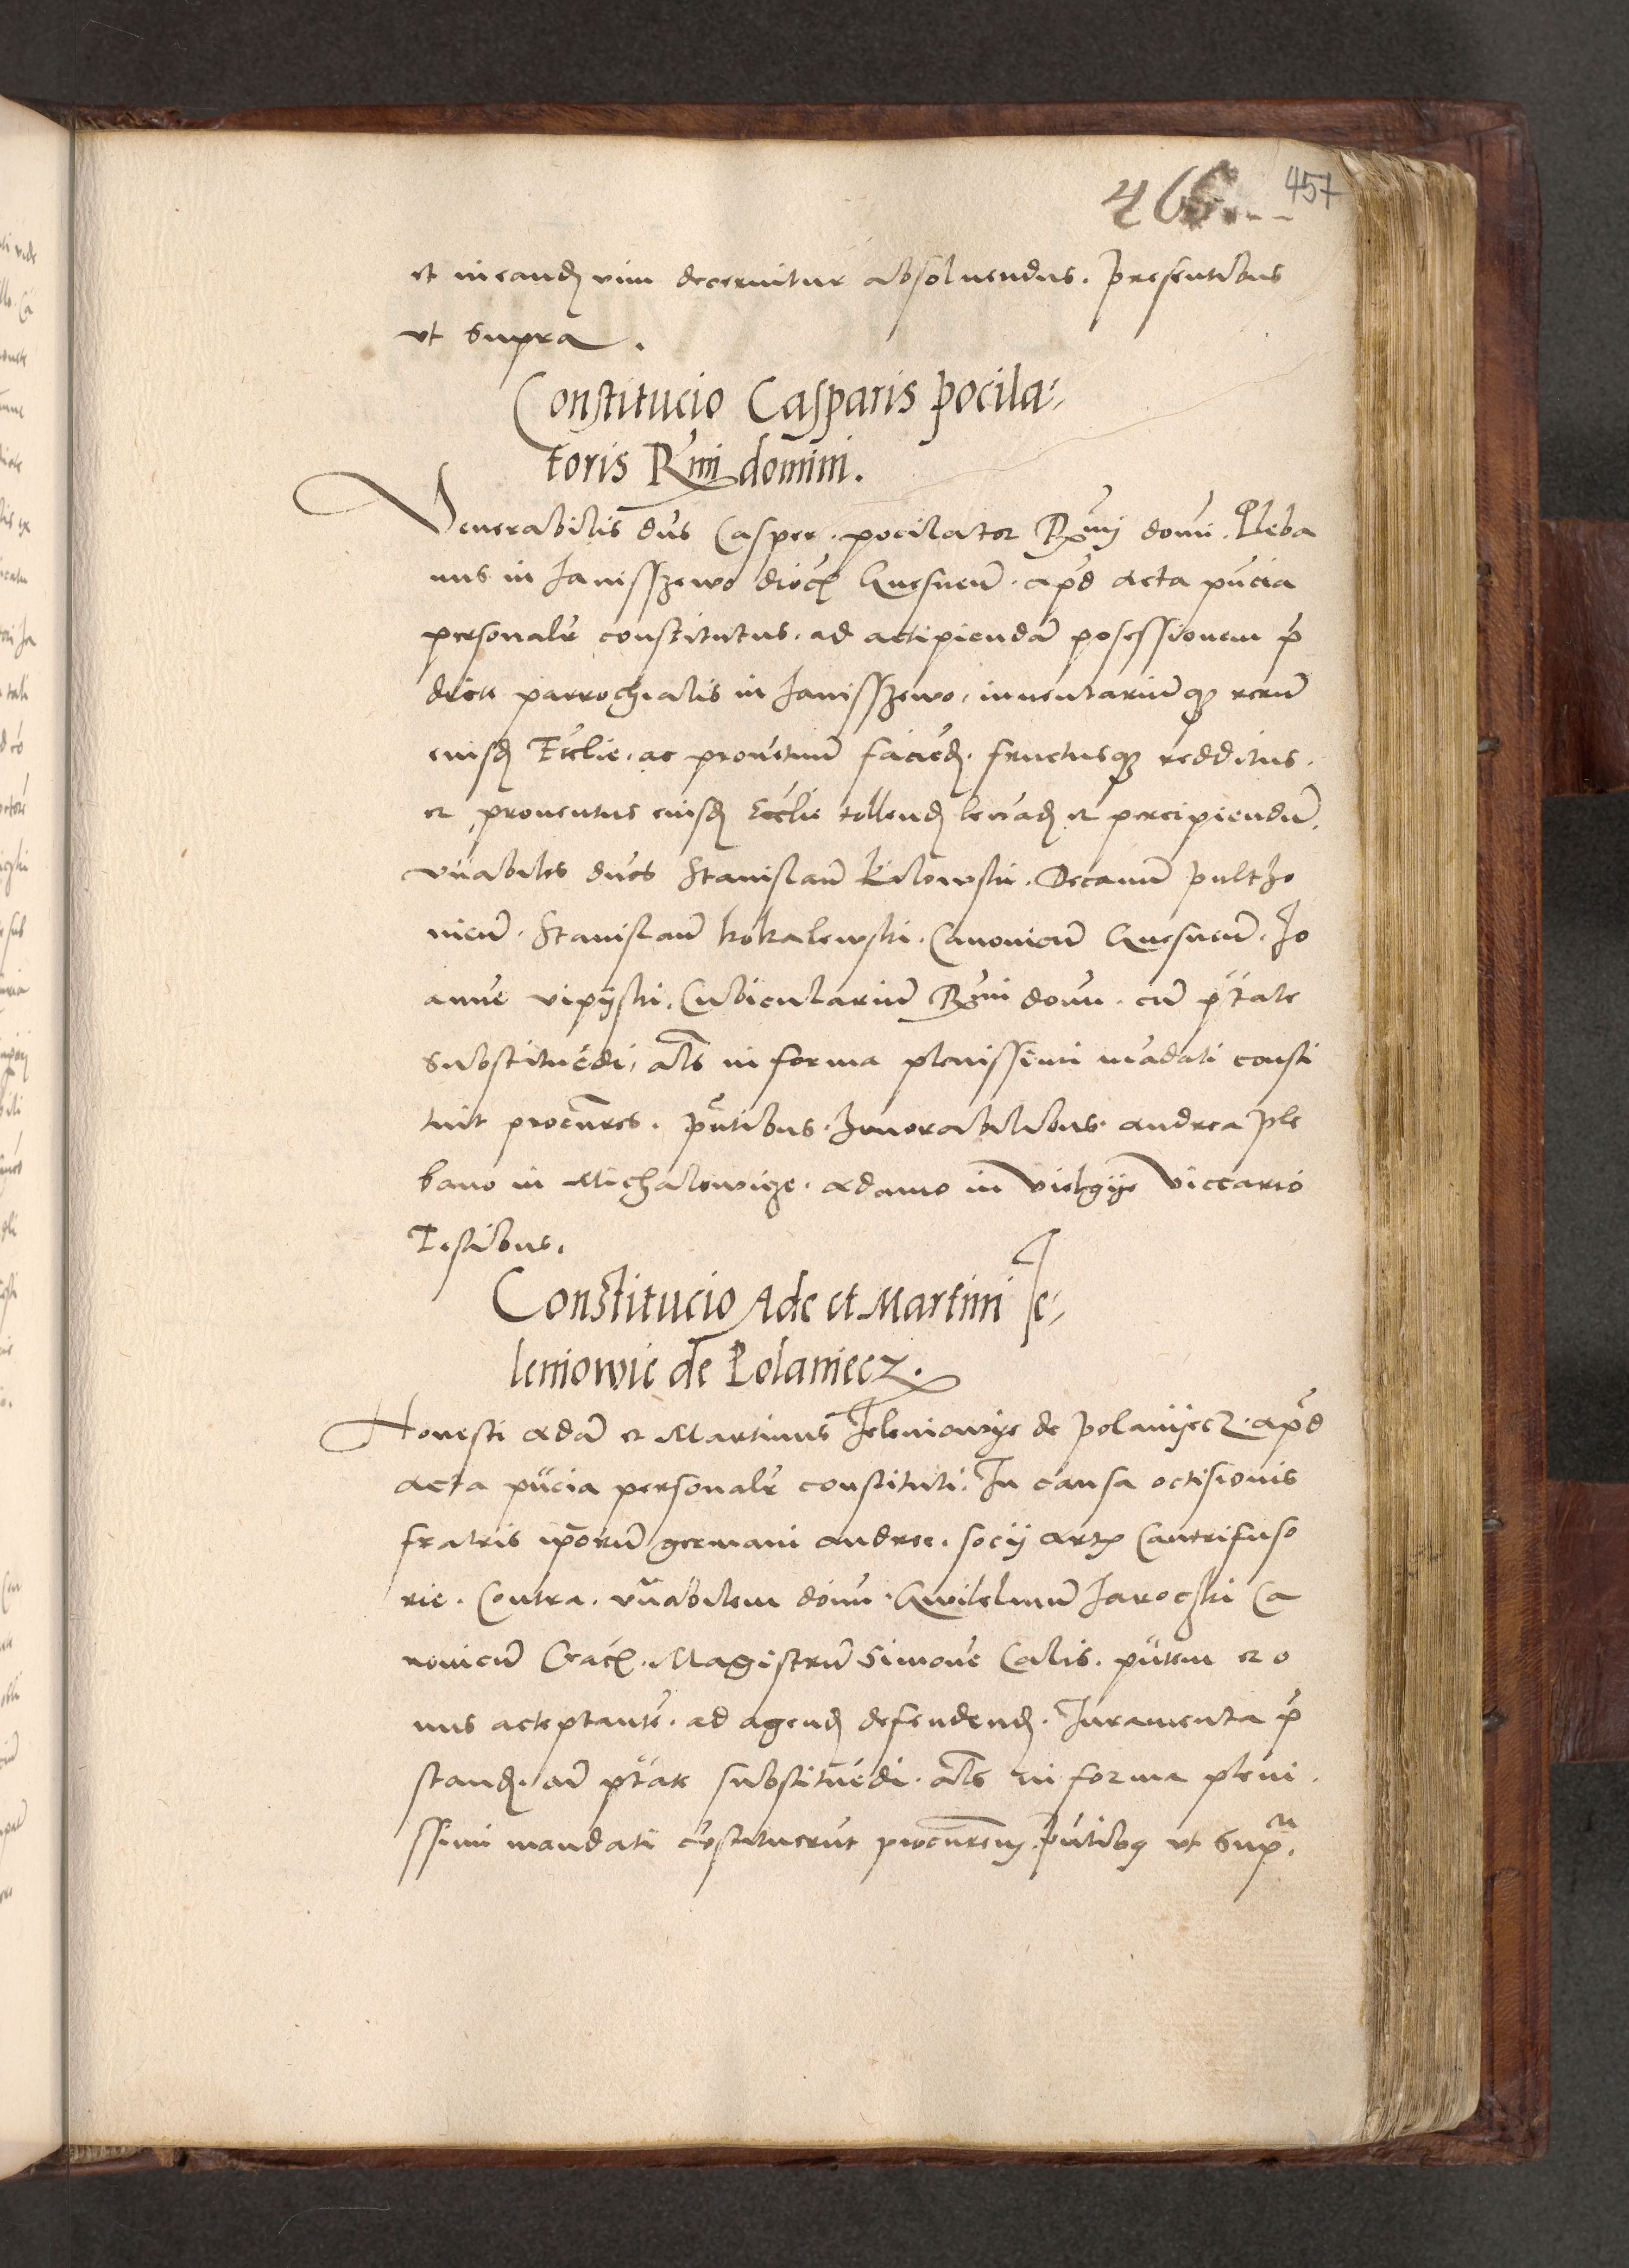 466
457
et in eandē vim decernitur absoluendus. Presentibus
vt supra.
Constitucio Casparis Pocila=
toris Rmi domini.
Venerabilis dns Casper. pocilator Rmi domi. Pleba
nus in Janisszewo dioc̄ Gnesnen̄. apd acta pn̄cia
personalr constitutus. ad actipiendā posessionem p̄
dicte parrochialis in Janisszewo, inuentariumqȝ rerū
eiusdē Ecclie. ac prouetuū faciēd. fructusqȝ redditus.
et prouentus eiusdē Ecclie tollend̄ levād̄ et percipiendū.
vn̄abiles dn̄os Stanislaū Kilowski. Decanū Pultzo
nien̄. Stanislaū kokalewski. Canonicū Gnesnen̄. Jo
anne vipijski. Cubicularium Rmi domi. cū ptāte
substituēdi, als in forma plenissimi mādati consti
tuit procurēs. pn̄tibus. honorabilibus. andrea Ple
bano in Michalowicze. adamo in Vielgije Viccario
Testibus.
Constitucio Ade et Martini Je=
leniowie de Polaniecz.
Honesti adā et Martinus Jeleniowije de Polanijecz. apd
acta pn̄cia personalr constituti. In causa octisionis
fratris ip̄orū germani andree. socij artꝭ Cantrifuso
rie. Contra. vn̄abilem domi. Gwilelmū Jaroczki Ca
nonicū Crac̄. Magistrū Simonē Calis. pn̄tem et o
nus acteptantē. ad agend̄ defendend̄. Juramenta p̄
stand̄. cū ptāte substituēdi. als in forma pleni
ssimi mandati cōstituerūt procurēm. pn̄tibꝰ vt supra.